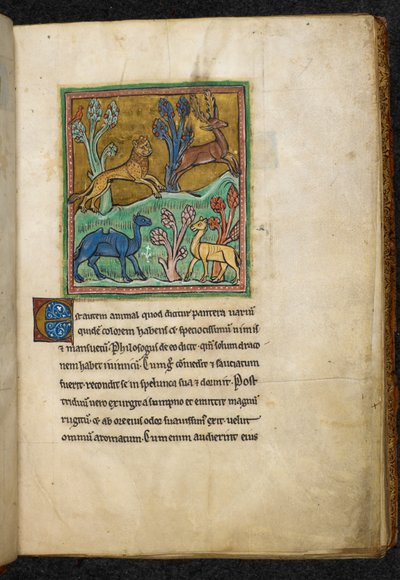 Est autem animal quod dicitur pantera variū
quidē colorem habens & speciosissimū nimis
& mansuetū. Philosogus de eo dicit. qm̄ solum draco
nem habet inimicū. Cumq; comedit & saciatum
fuerit. recondit se in spelunca sua & dormit. Post
triduū vero exurgit a sompno et emittit magnū
rugitū. & ab ore eius odor suavissim⁹ exit velut
omniū aromatum. Cum enim audierint eius